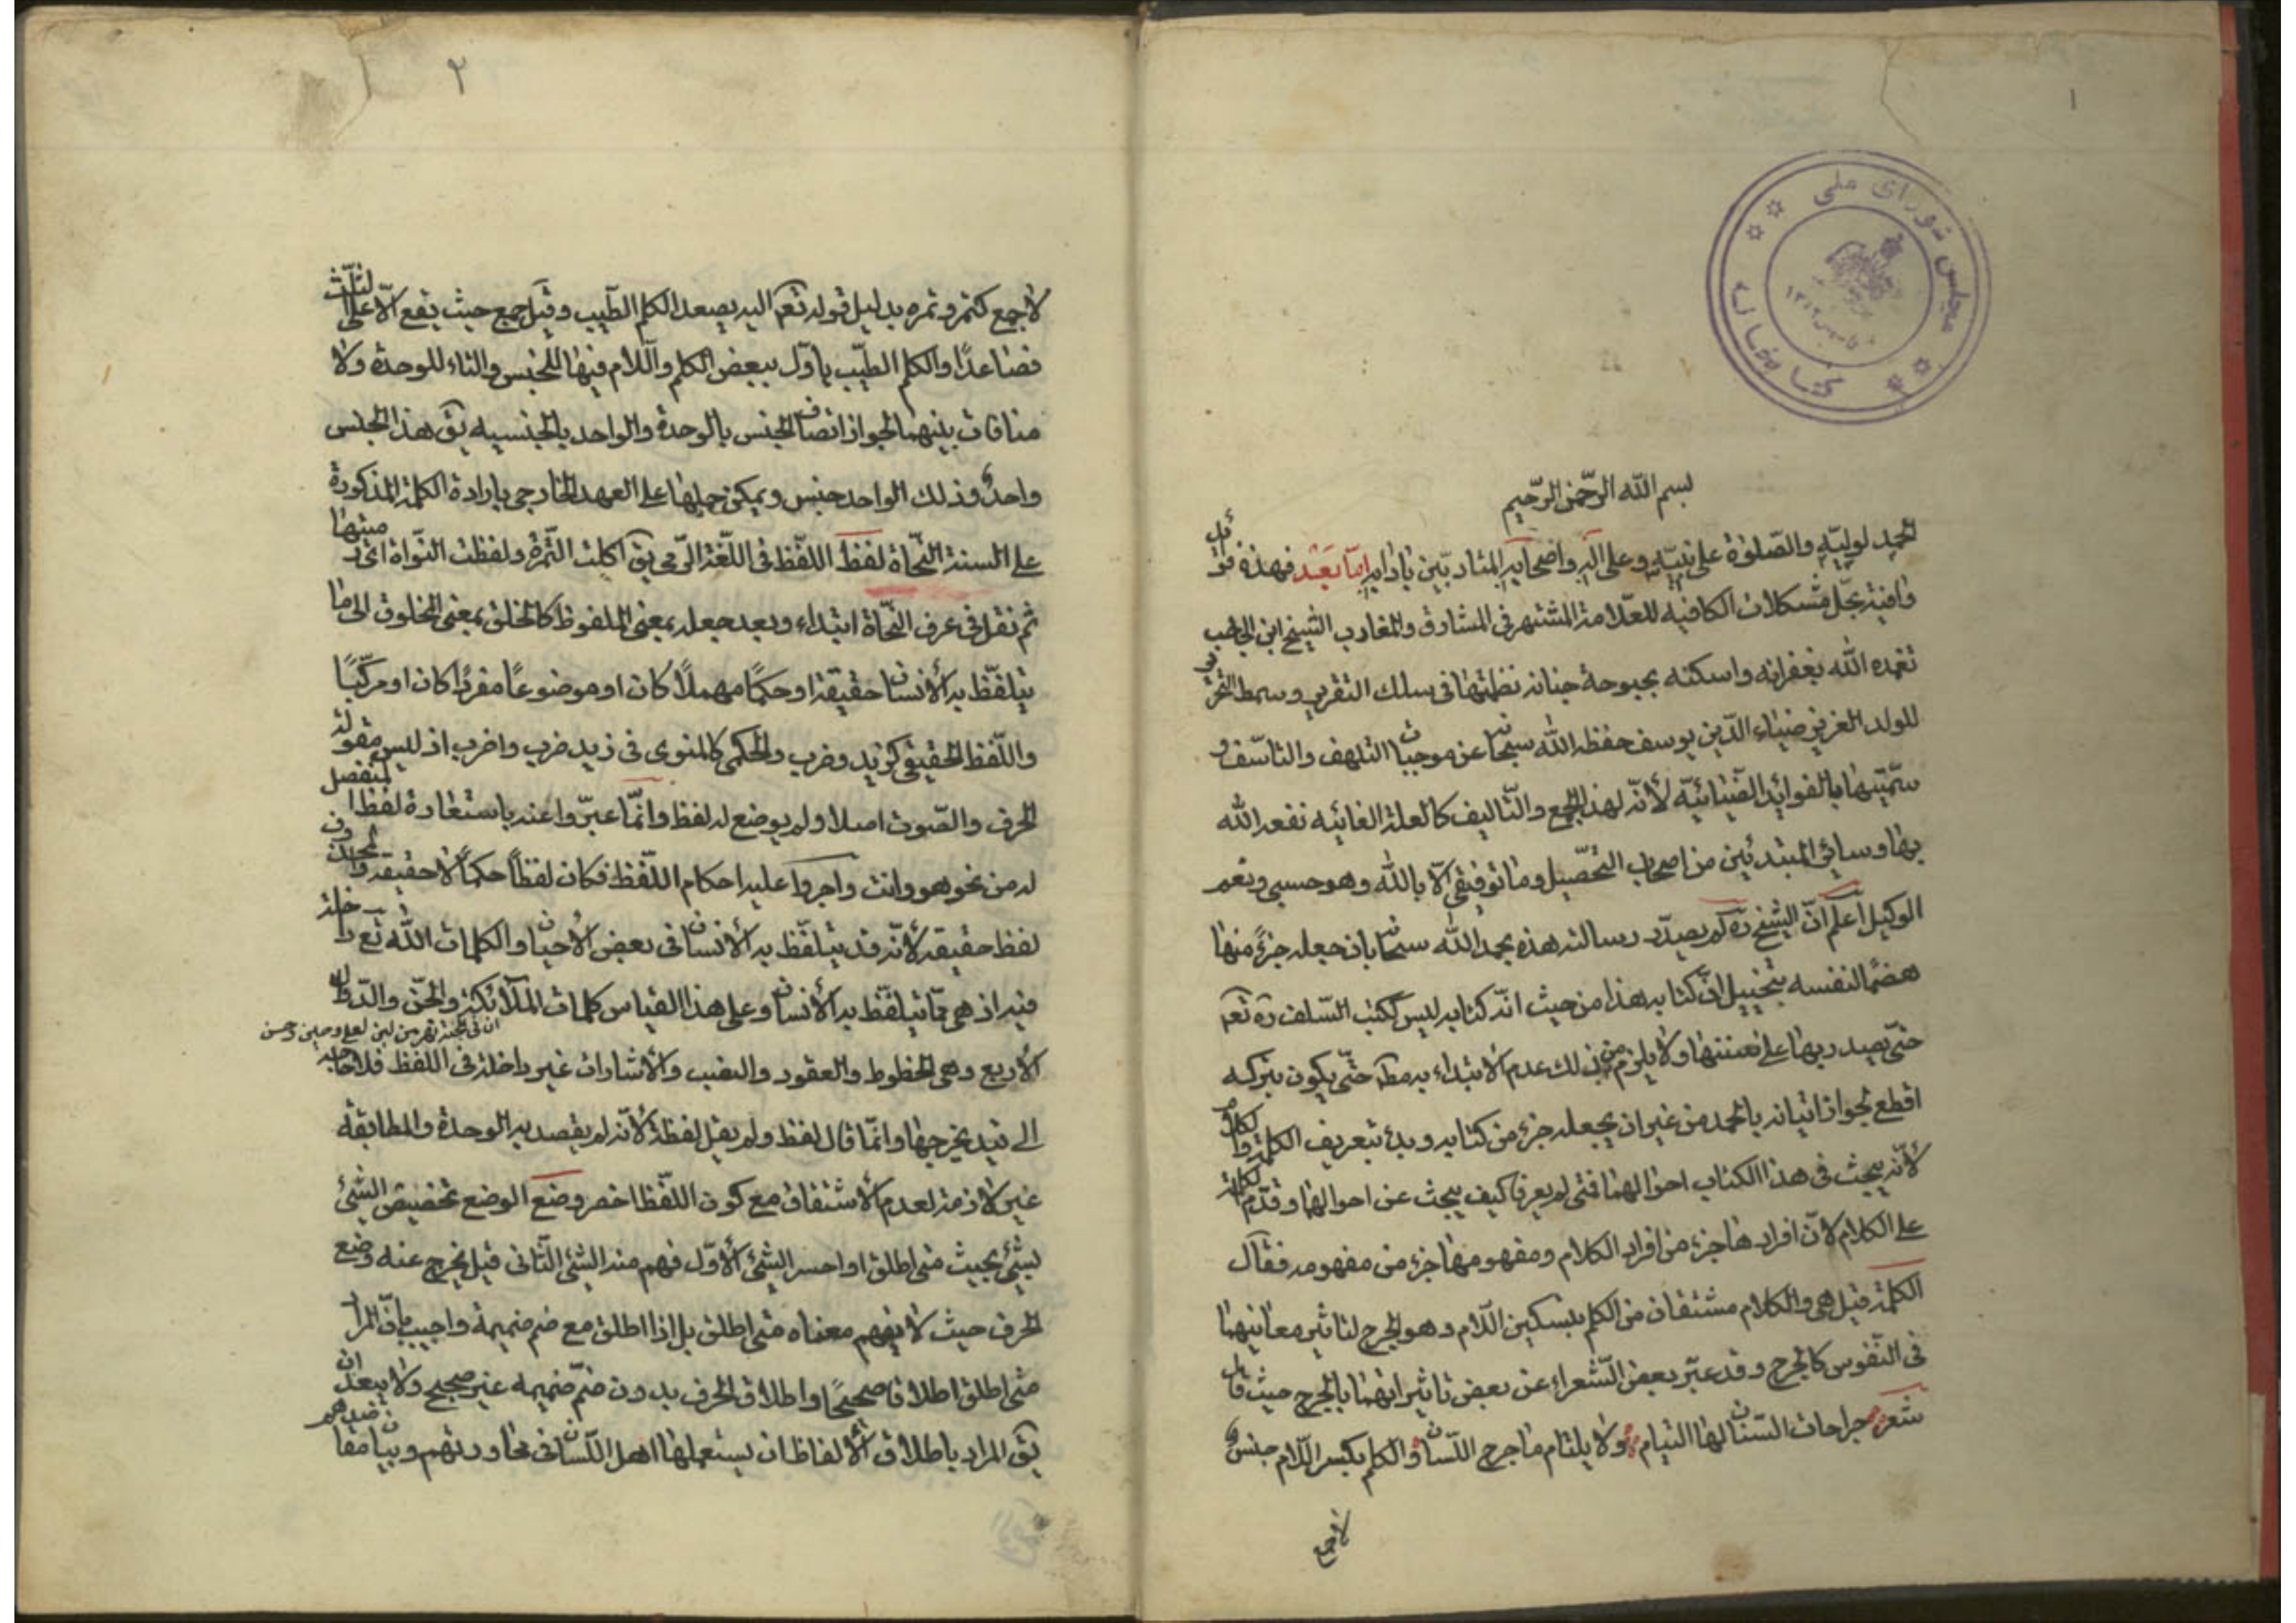 ١
مجلس شورای ملی
کتابخانه
بسم الله الرّحمن الرّحیم
الحمد لولیّه والصّلوة علی نبیّه وعلی آله واصحابه المتادبّین باٰدابه امّا بَعْد فهذه فوائد
وافیة بحلّ مشکلات الکافیه للعلّامة المشتهر فی المشارق والمغارب الشیخ ابن الحاجب
تغمده الله بغفرانه واسکنه بحبوحة جنانه نظمتها فی سلک التقریر وسمط التحریر
للولد العزیز ضیاء الدّین یوسف حفظه الله سبحانه عن موجبات التلهف والتاسّف و
سمّیتها بالفوائد الضّیائیّه لأنّه لهذا الجمع والتّالیف کالعلة الغائیه نفعه الله
بها وسائر المبتدئین من اصحاب التحصّیل وما توفیقی الّا بالله وهو حسبی ونعم
الوکیل اعلم انّ الشیخ ره لم یصدّر رسالته هذه بحمد الله سبحانه بان جعله جزءً منها
هضمًا لنفسه بتخییل انّ کتابه هذا من حیث انّه کتابه لیس ککتب السّلف ره تعم
حتّی یصدر بها علی سننها ولا یلزم من ذلک عدم الابتداء به مط حتّی یکون بترکه
اقطع لجواز اتیانه بالحمد من غیر ان یجعله جزء من کتابه وبدء بتعریف الکلمة والکلام
لأنّه یبحث فی هذا الکتاب احوالهما فمتی لم یعرفا کیف یبحث عن احوالهما وقدّم الکلمة
علی الکلام لانّ افرادها جزء من افراد الکلام ومفهومها جزء من مفهومه فقال
الکلمة قیل هی والکلام مشتقان من الکلم بتسکین اللّام وهو الجرح لتاثیر معانیهما
فی النّفوس کالجرح وقد عبّر بعض الشّعراء عن بعض تاثیراتهما بالجرح حیث قال
شعر جراحات السّنان لها التیام ولا یلتام ما جرح اللّسان والکلم بکسر اللّام جنس
لا جمع
٢
لا جمع کتمر وتمره بدلیل قوله تعم الیه یصعد الکلم الطّیب وقیل جمع حیث یقع الّا علی الثلّث
فصاعدًا والکلم الطیّب یاوّل ببعض الکلم واللّام فیها للجنس والتاء للوحدة ولا
منافات بینهما لجواز اتصاف الجنس بالوحدة والواحد بالجنسیه یق هذا الجنس
واحد وذلک الواحد جنس ویمکن حملها علی العهد الخارجی بارادة الکلمة المذکورة
علی السنة النّحاة لفظ اللّفظ فی اللّغة الرّمی یق اکلت التّمرة ولفظت النّواة ای رمیتها
ثم نقل فی عرف النّحاة ابتداء وبعد جعله بمعنی الملفوظ کالخلق بمعنی المخلوق الی ما
یتلفّظ به الأنسان حقیقة او حکمًا مهملًا کان او موضوعًا مفردًا کان او مرکّبًا
واللّفظ الحقیقی کزید وضرب والحکمی کالمنوی فی زید ضرب واضرب اذ لیس مقولة
الحرف والصّوت اصلا ولم یوضع له لفظ وانّما عبّروا عنه باستعارة لفظ المنفصل
له من نحو هو وانت واجروا علیه احکام اللّفظ فکان لفظًا حکمًا لا حقیقة والمحذوف
لفظ حقیقة لأنّه قد یتلفّظ به الأنسان فی بعض الأحیان والکلمات الله تع داخلة
فیه اذ هی ممّا یتلفّظ به الأنسان وعلی هذا القیاس کلمات الملآئکة والجنّ والدّوالّ
ان فی الجنة نهر من لبن لعلی وحسین وحسن
الأربع وهی الخطوط والعقود والنصب والأشارات غیر داخلة فی اللفظ فلا حاجة
الی قید یخرجها وانّما قال لفظ ولم یقل لفظة لأنّه لم یقصد به الوحدة والمطابقة
غیر لازمة لعدم الأشتقاق مع کون اللّفظ اخصر وضع الوضع تخصیص الشّیئ
بشئ بحیث متی اطلق او احسّ الشّیئ الأوّل فهم منه الشّئ الثّانی قیل یخرج عنه وضع
الحرف حیث لا یفهم معناه متی اطلق بل اذا اطلق مع ضم ضمیمة واجیب بانّ المراد
متی اطلق اطلاقا صحیحًا واطلاق الحرف بدون ضمّ ضمیمه غیر صحیح ولا یبعد ان
یق المراد باطلاق الألفاظ ان یستعملها اهل اللّسان فی محاوراتهم وبیان مقاصدهم